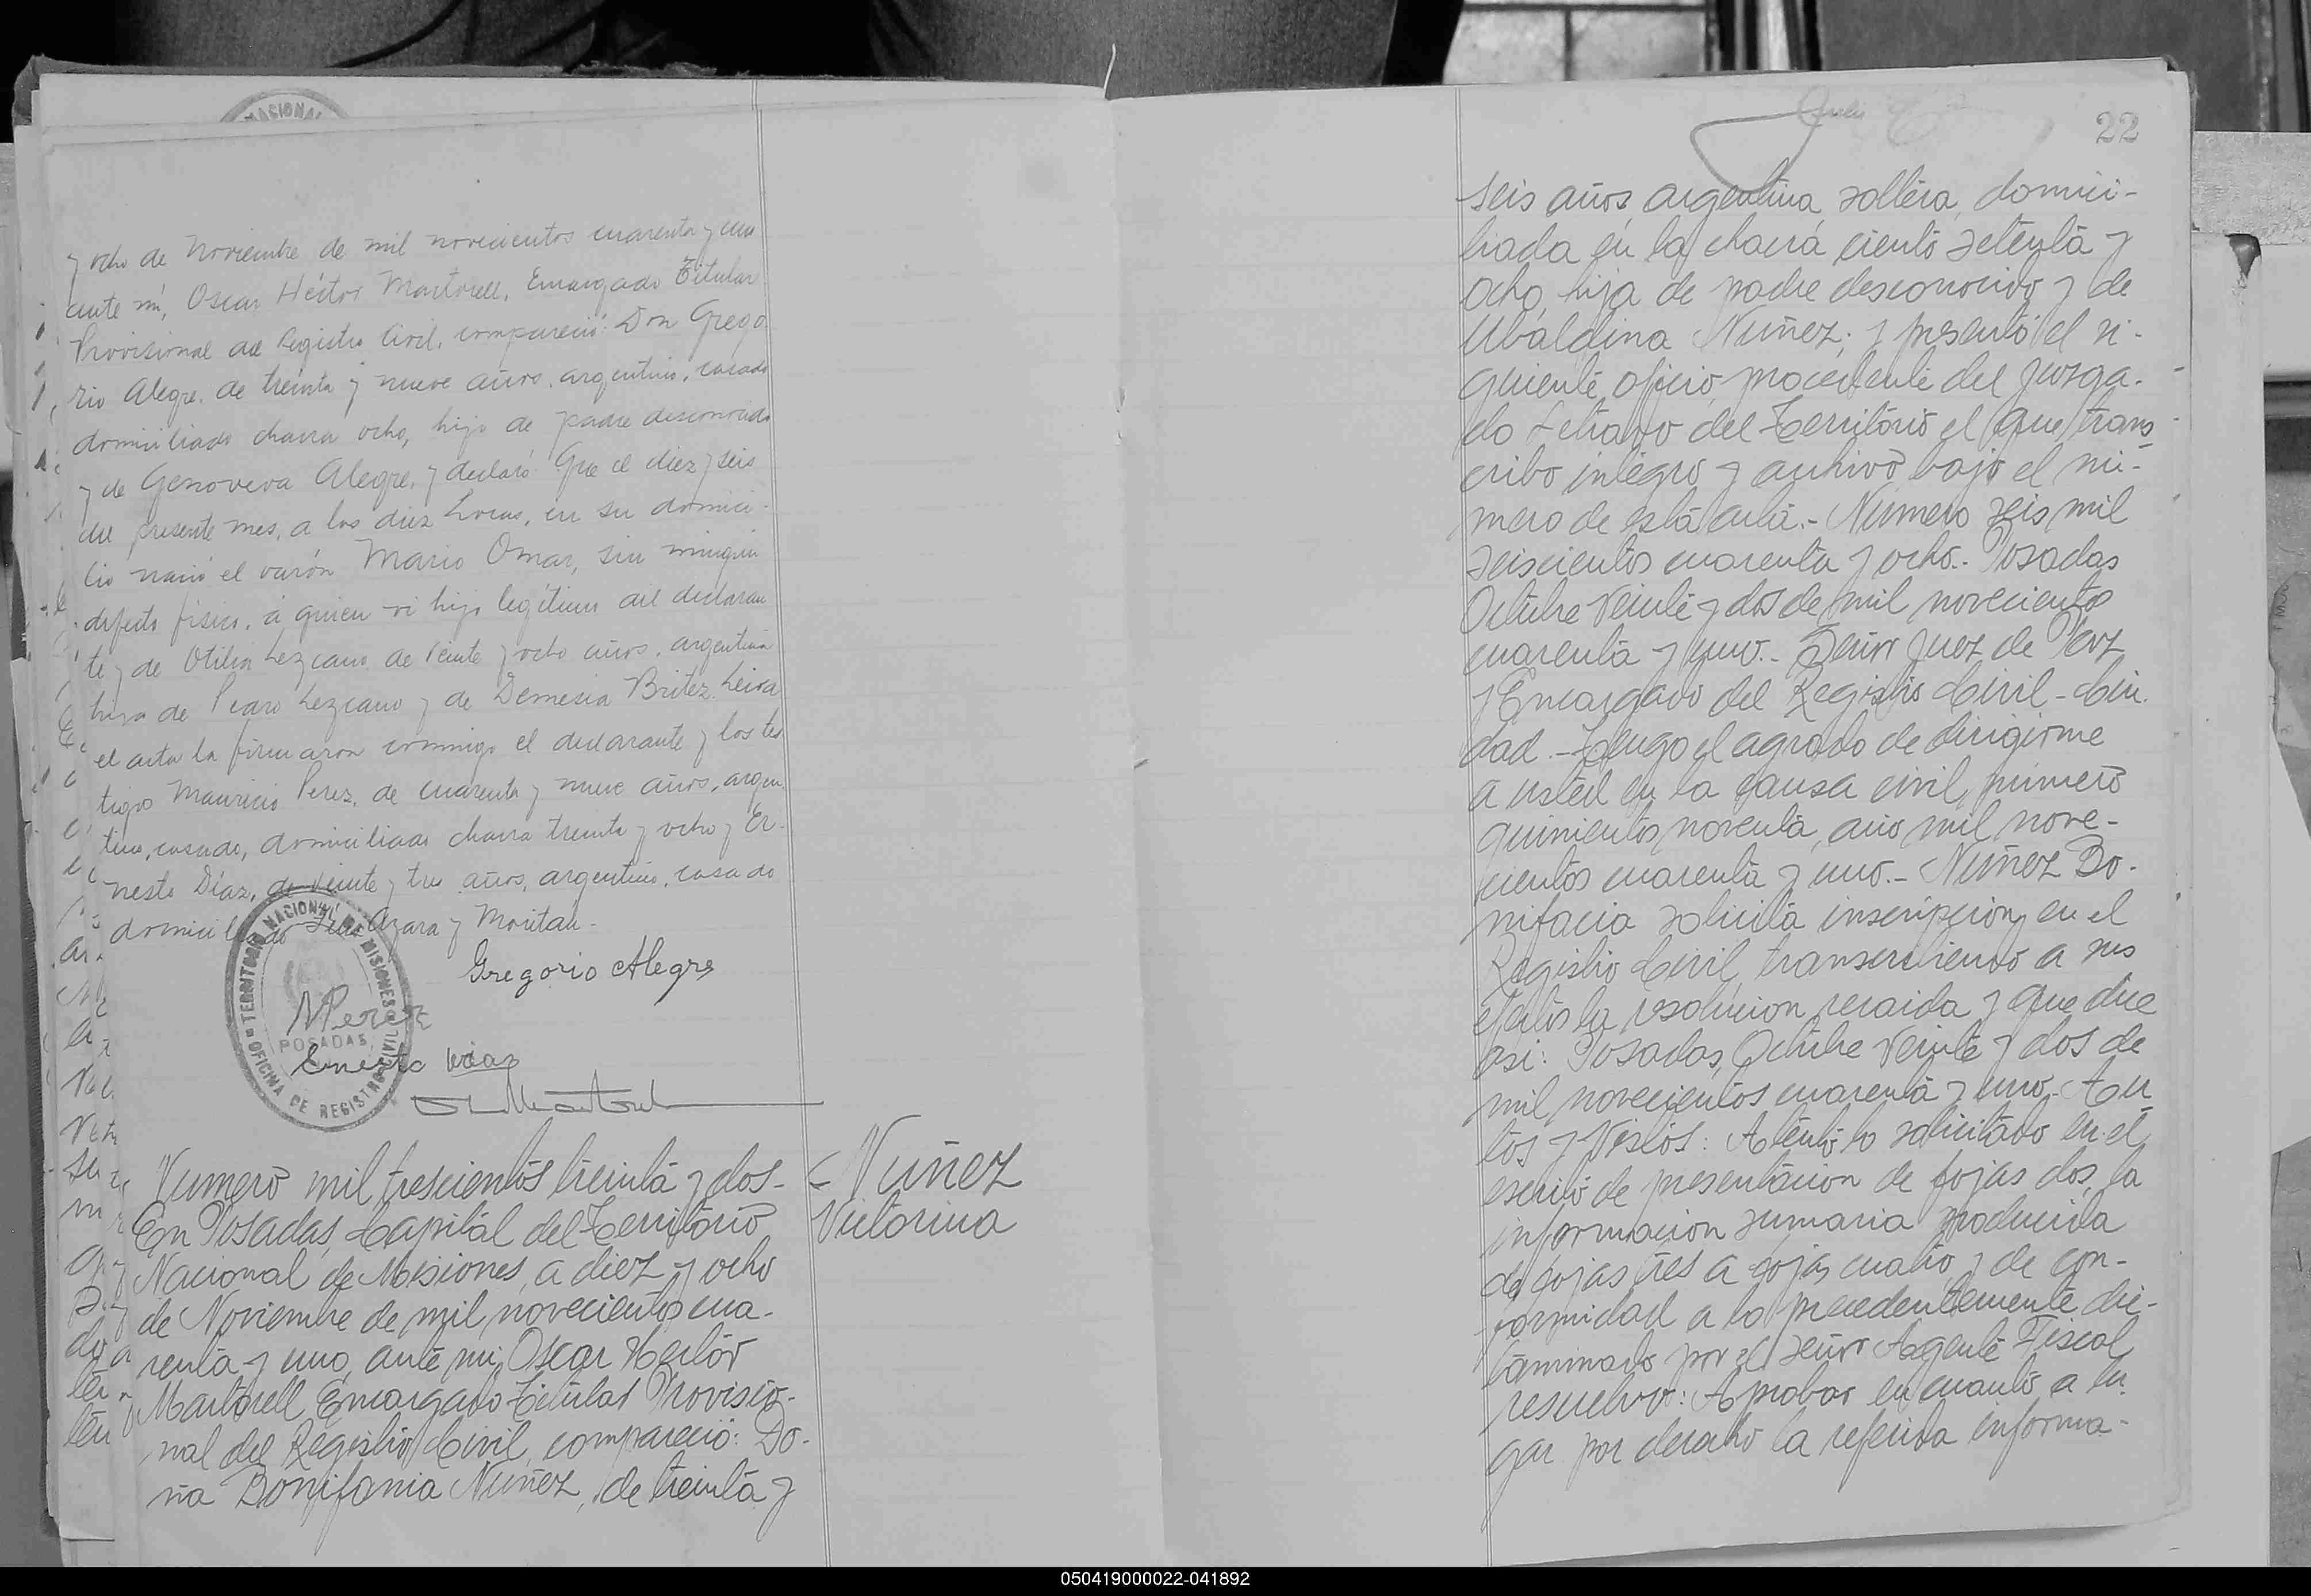 y ocho de Noviembre de mil novecientos cuarenta y uno
ante mí, Oscar Héctor Martorell, Encargado Titular
Provisional del Registro Civil, compareció: Don Grego
rio Alegre, de treinta y nueve años, argentino, casado
domiciliado chacra ocho, hijo de padre desconocido
y de Genoveva Alegre, y declaró: Que el diez y seis
del presente mes, a las diez horas, en su domici-
lio nació el varón Mario Omar, sin ningún
defecto físico, a quien vi hijo legítimo del declaran
te y de Otilia Lezcano de veinte y ocho años, argentina
hija de Pedro Lezcano y de Demesia Britez. Leida
el acta la firmaron conmigo el declarante y los tes
tigos Mauricio Perez, de cuarenta y nueve años, argen
tino, casado, domiciliado chacra treinta y ocho y Er-
nesto Díaz, de veinte y tres años, argentino, casado
domiciliado Azara y Moritán-
Gregorio Alegre
MPerez
Ernesto Diaz
TERRITORIO NACIONAL DE MISIONES
POSADAS
OFICINA DE REGISTRO CIVIL
Numero mil trescientos treinta y dos-
Nuñez
Victorina
En Posadas, Capital del Territorio
Nacional de Misiones, a diez y ocho
de Noviembre de mil novecientos cua-
renta y uno, ante mi, Oscar Hector
Martorell Encargado Titular Provisio-
nal del Registro Civil, compareció: Do-
ña Bonifania Nuñez, de treinta y
22
seis años, argentina, soltera, domici-
liada en la chacra ciento setenta y
ocho, hija de padre desconocido y de
Ubaldina Nuñez; y presentó el si-
guiente oficio, procedente del Juzga-
do Letrado del Territorio el que trans
cribo integro y archivo bajo el nú-
mero de esta acta.- Numero seis mil
seiscientos cuarenta y ocho.- Posadas
Octubre veinte y dos de mil novecientos
cuarenta y uno.- Señor Juez de Paz
y Encargado del Registro Civil - Ciu-
dad.- Tengo el agrado de dirigirme
a usted en la causa civil, número
quinientos noventa, año mil nove-
cientos cuarenta y uno.- Nuñez Bo-
nifacia solicita inscripcion en el
Registro Civil, transcribiendo a sus
efectos la resolucion recaida y que dice
asi: Posadas, Octubre veinte y dos de
mil novecientos cuarenta y uno. Au
tos y Vistos: Atento lo solicitado en el
escrito de presentacion de fojas dos, la
informacion sumaria producida
de fojas tres a fojas cuatro, y de con-
formidad a lo precedentemente dic-
taminado por el señor Agente Fiscal,
resuelvo: Aprobar en cuanto a lu
gar por derecho la referida informa-
050419000022-041892